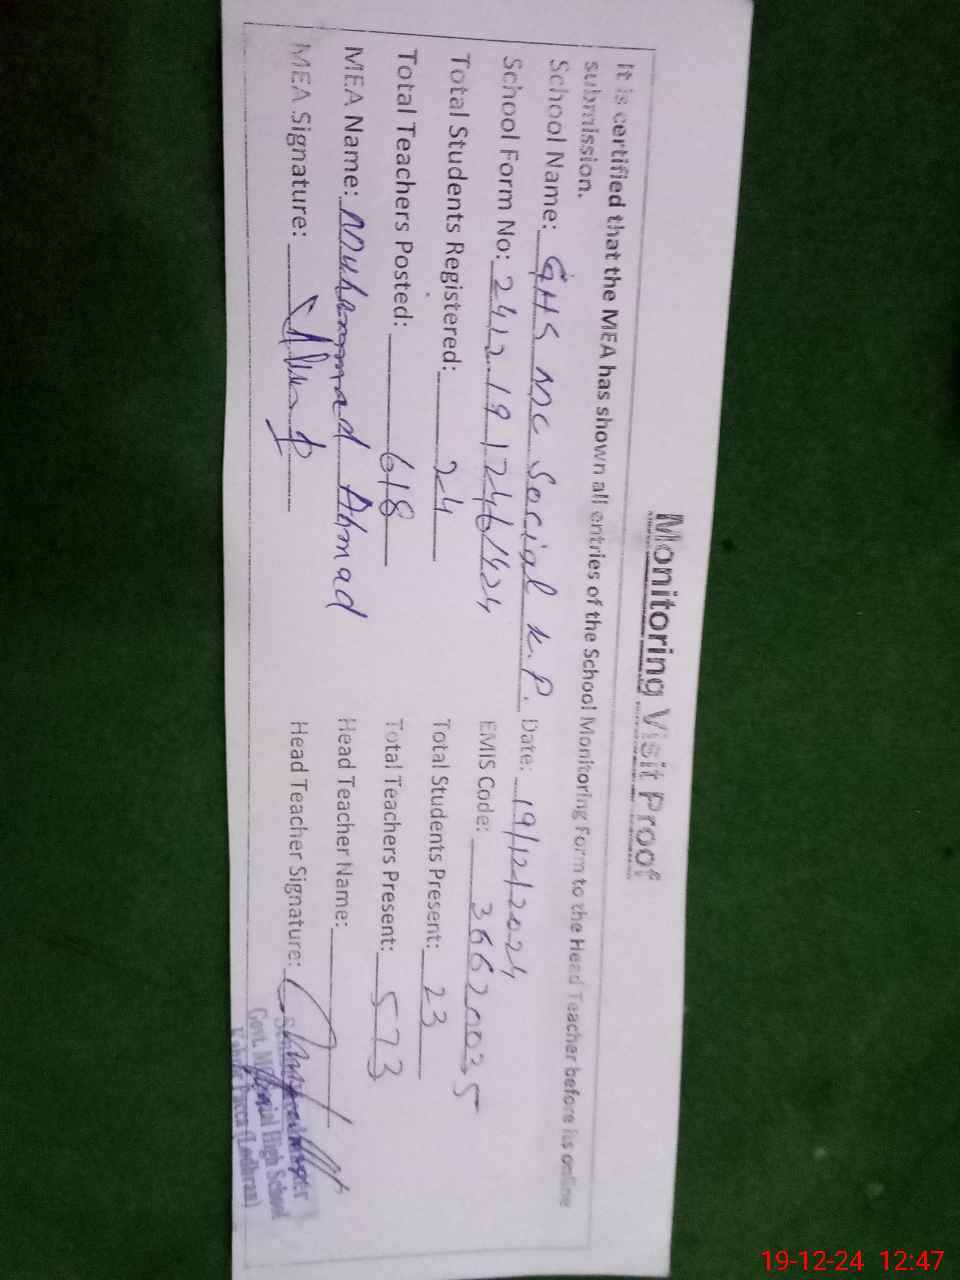 Monitoring Visit Proof
It is certified that the MEA has shown all entries of the School Monitoring Form to the Head Teacher before its online
submission.
School Name: GHS MC Social K.P. Date: 19/12/2024
School Form No: 24121912461424 EMIS Code: 36620025
Total Students Registered: 24 Total Students Present: 23
Total Teachers Posted: 618 Total Teachers Present: 573
MEA Name: Muhammad Ahmad Head Teacher Name:
MEA Signature: Head Teacher Signature:
Govt. High School
(Lodhran)
19-12-24 12:47